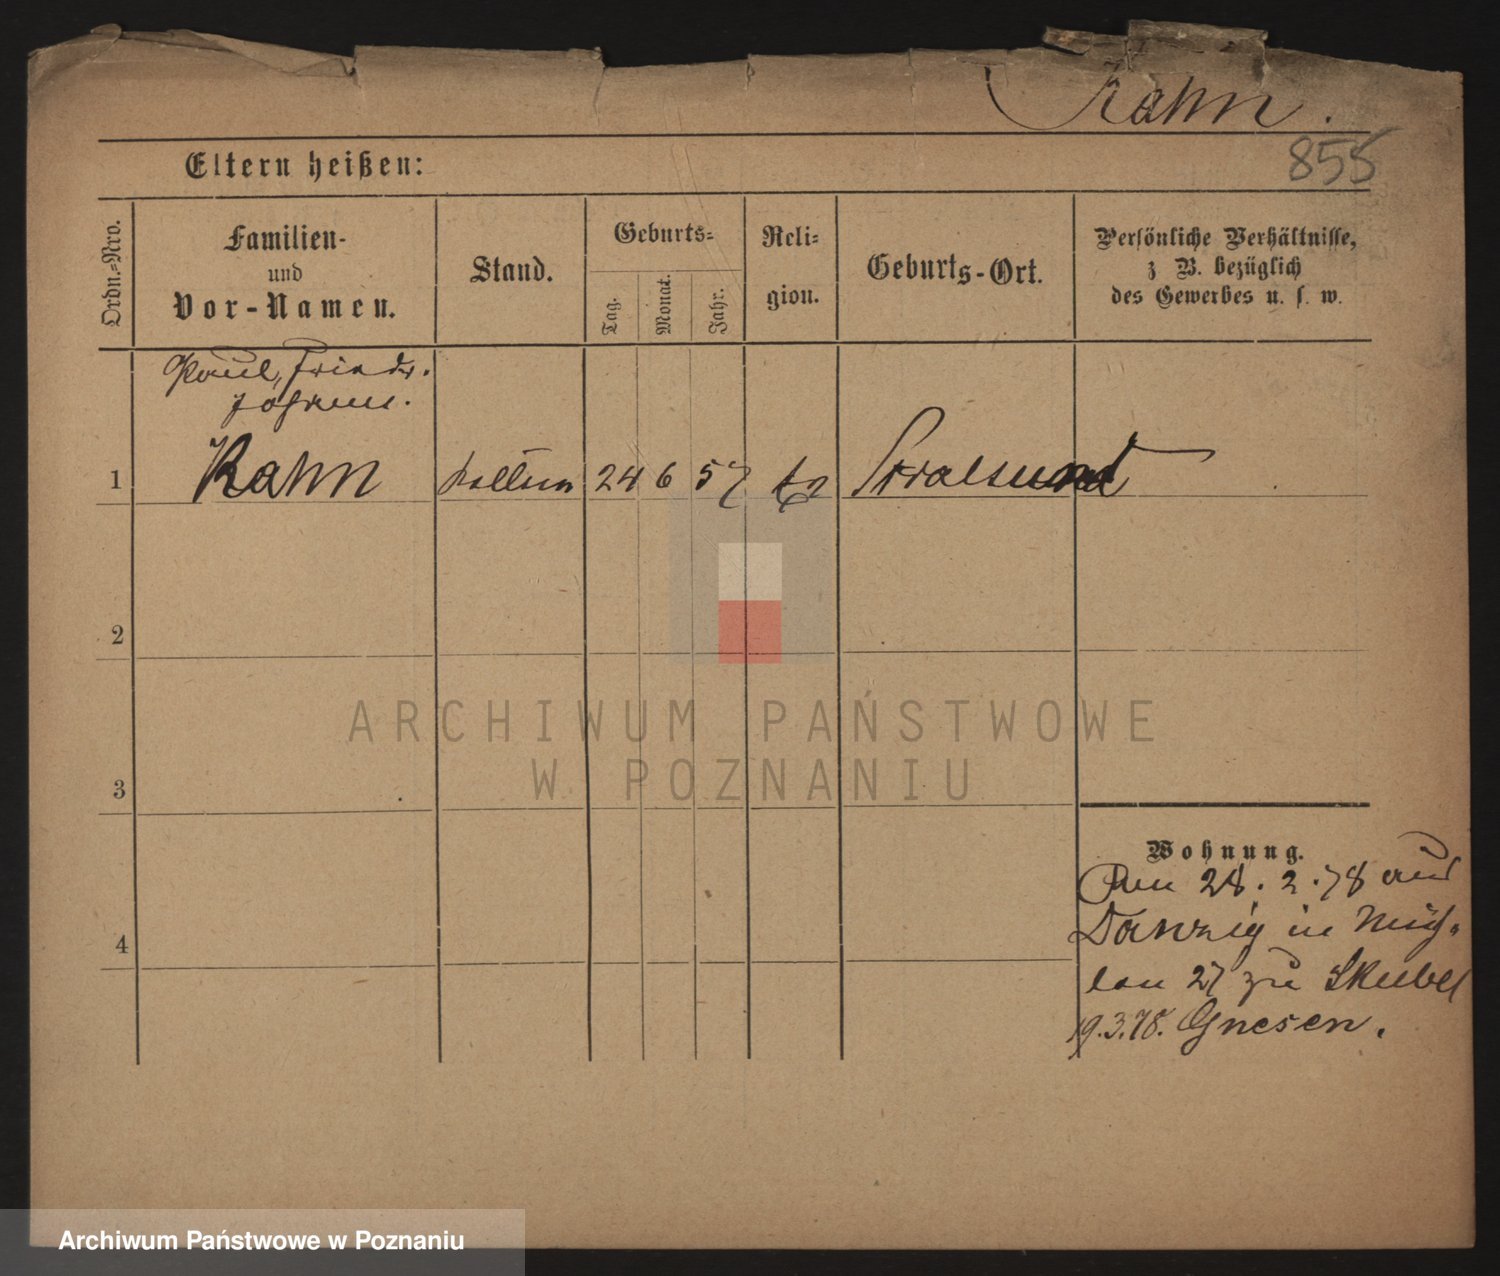 Kahn.
855
Eltern heißen:
Ordn.=Nro.
Familien-
und
Vor-Namen.
Stand.
Geburts=
Tag.
Monat.
Jahr.
Reli=
gion.
Geburts-Ort.
Persönliche Verhältnisse,
z B. bezüglich
des Gewerbes u. s. w.
Paul, Friedr.
Johann.
1 Kahn Kellner 24 6 57 Stralsund
2
3
4
Wohnung.
28. 2. 78 aus
Danzig in
27 zu
19.3.78. Gnesen.
ARCHIWUM PAŃSTWOWE
W POZNANIU
Archiwum Państwowe w Poznaniu